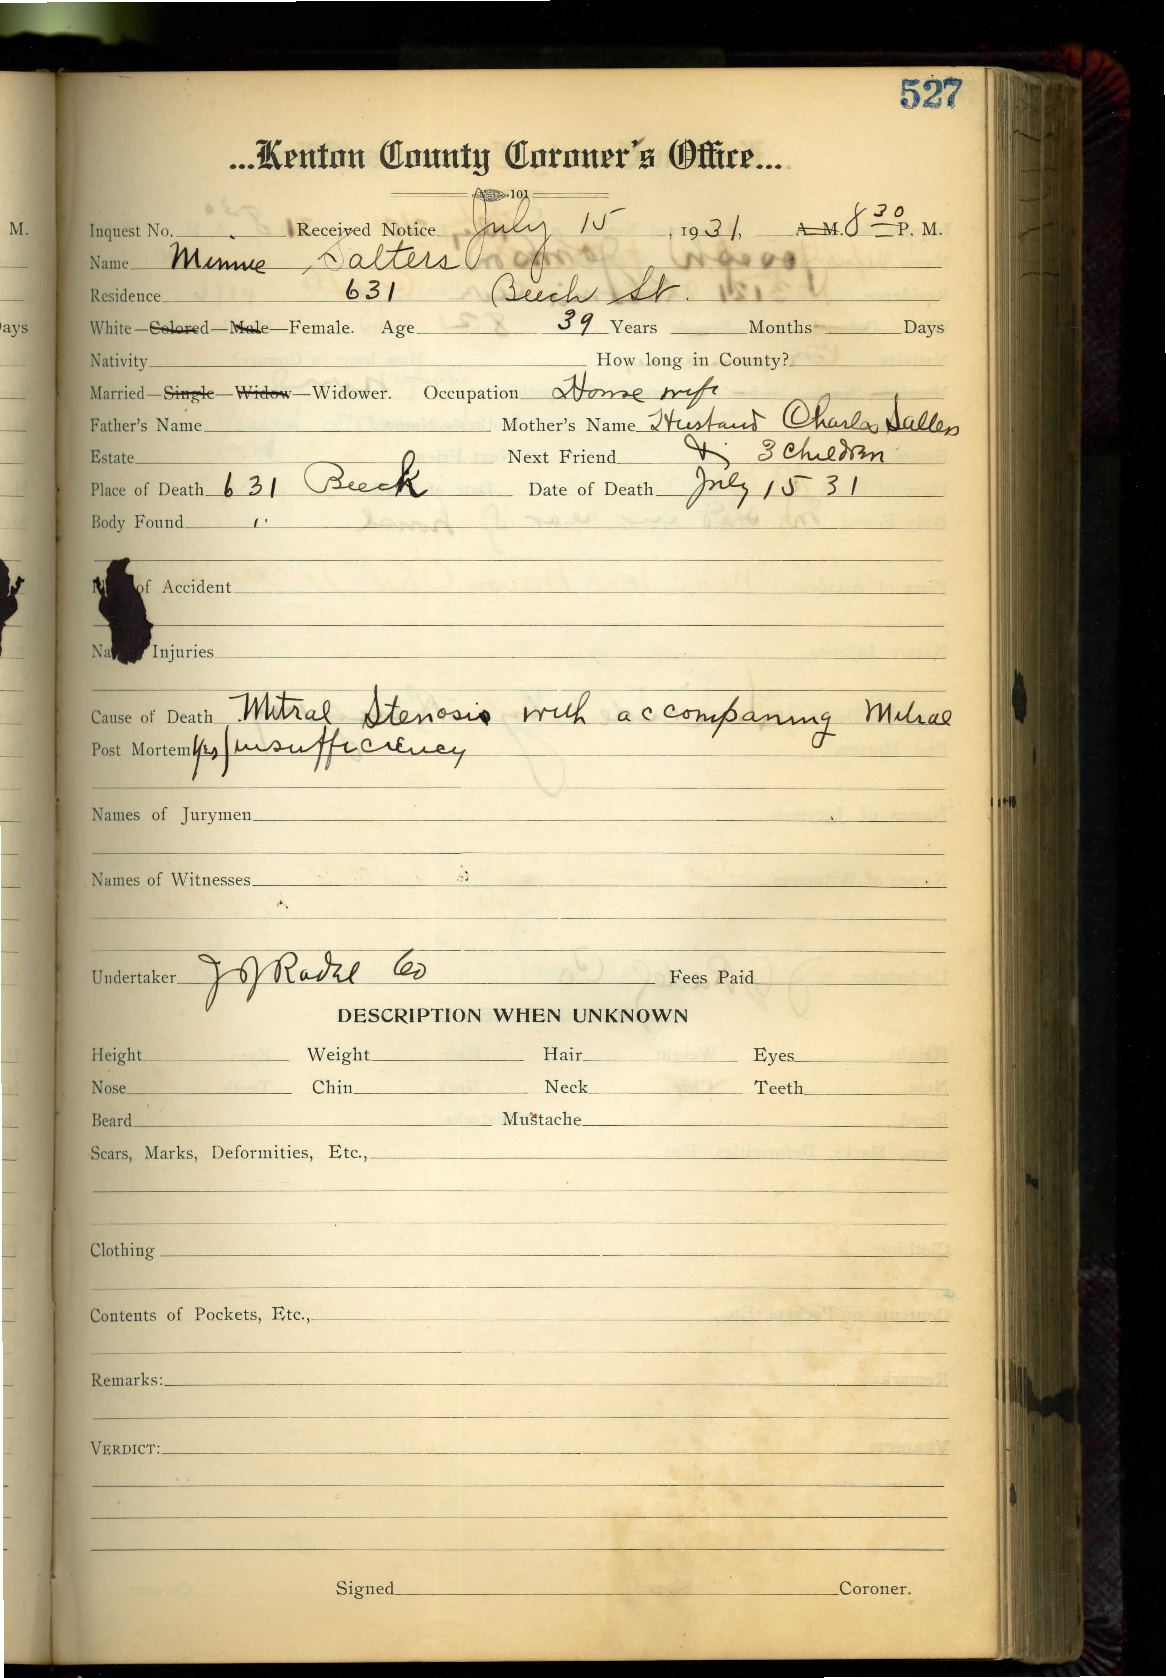 527
...Kenton County Coroner's Office...
101
M. Inquest No. Received Notice July 15, 1931, A. M. 8 30 P. M.
Name Minnie Salters
Residence 631 Beech St.
ays White—Colored—Male—Female. Age 39 Years Months Days
Nativity How long in County?
Married—Single—Widow—Widower. Occupation House wife
Father's Name Mother's Name Husband Charles Salters
Estate Next Friend & 3 children
Place of Death 631 Beech Date of Death July 15 31
Body Found "
of Accident
Na Injuries
Cause of Death Mitral Stenosis with accompaning Mitral
Post Mortem yes insufficiency
Names of Jurymen
Names of Witnesses
Undertaker J J Radel Co Fees Paid
DESCRIPTION WHEN UNKNOWN
Height Weight Hair Eyes
Nose Chin Neck Teeth
Beard Mustache
Scars, Marks, Deformities, Etc.,
Clothing
Contents of Pockets, Etc.,
Remarks:
VERDICT:
Signed Coroner.